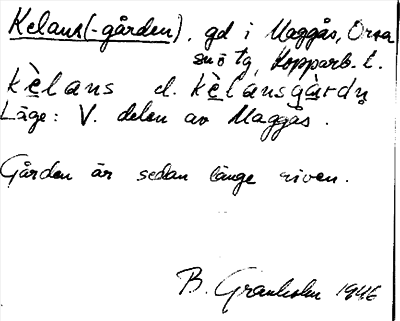 Kelans(-gården), gd i Maggås, Orsa
snö tg, Kopparb. l.
kèlans d. kèlansgàrdn̥
Läge: V. delen av Maggås.
Gården är sedan länge riven.
B. Granholm 1946